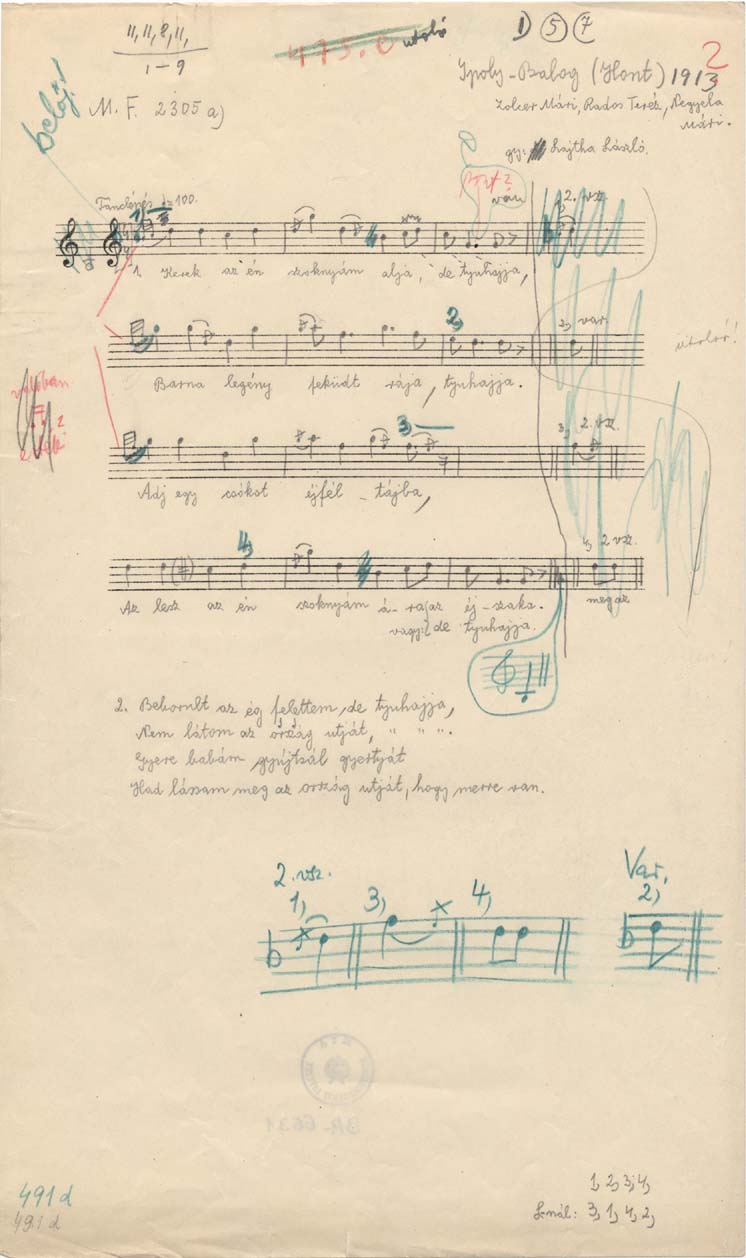 11, 11, 8, 11,
1-9
475.c utolsó
1) 5 7
2
Ipoly-Balog (Hont) 1913
M. F. 2305 a)
Zolcer Mári, Rados Teréz, Negyela
Mári.
gy: Lajtha László.
Tánclépés ♩=100.
van
2. vsz.
1. Kerek az én szoknyám alja, de tyuhajja,
2, 2, var.
utolsó!
Barna legény feküdt rája, tyuhajja.
valóban
3 3, 2. vsz.
Adj egy csókot éjfél-tájba,
4, 4, 2 vsz.
Az lesz az én szoknyám á-ra, az éj-szaka. meg az
vagy: de tyuhajja.
2. Beborult az ég felettem, de tyuhajja,
Nem látom az ország utját, " " ".
Gyere babám gyújtsál gyertyát
Had lássam meg az ország utját, hogy merre van.
2. vsz. Var.
1, 3, 4, 2)
BR-6631
491d
491d
1, 2, 3, 4,
L-nál: 3, 1, 4, 2,